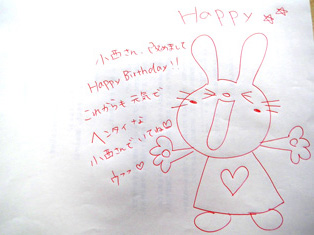 Happy ☆☆
小西さん、おめまして
Happy Birthday!!
これからも元気で
ヘンタイな
小西さんでいてね♡
ウフッ♡